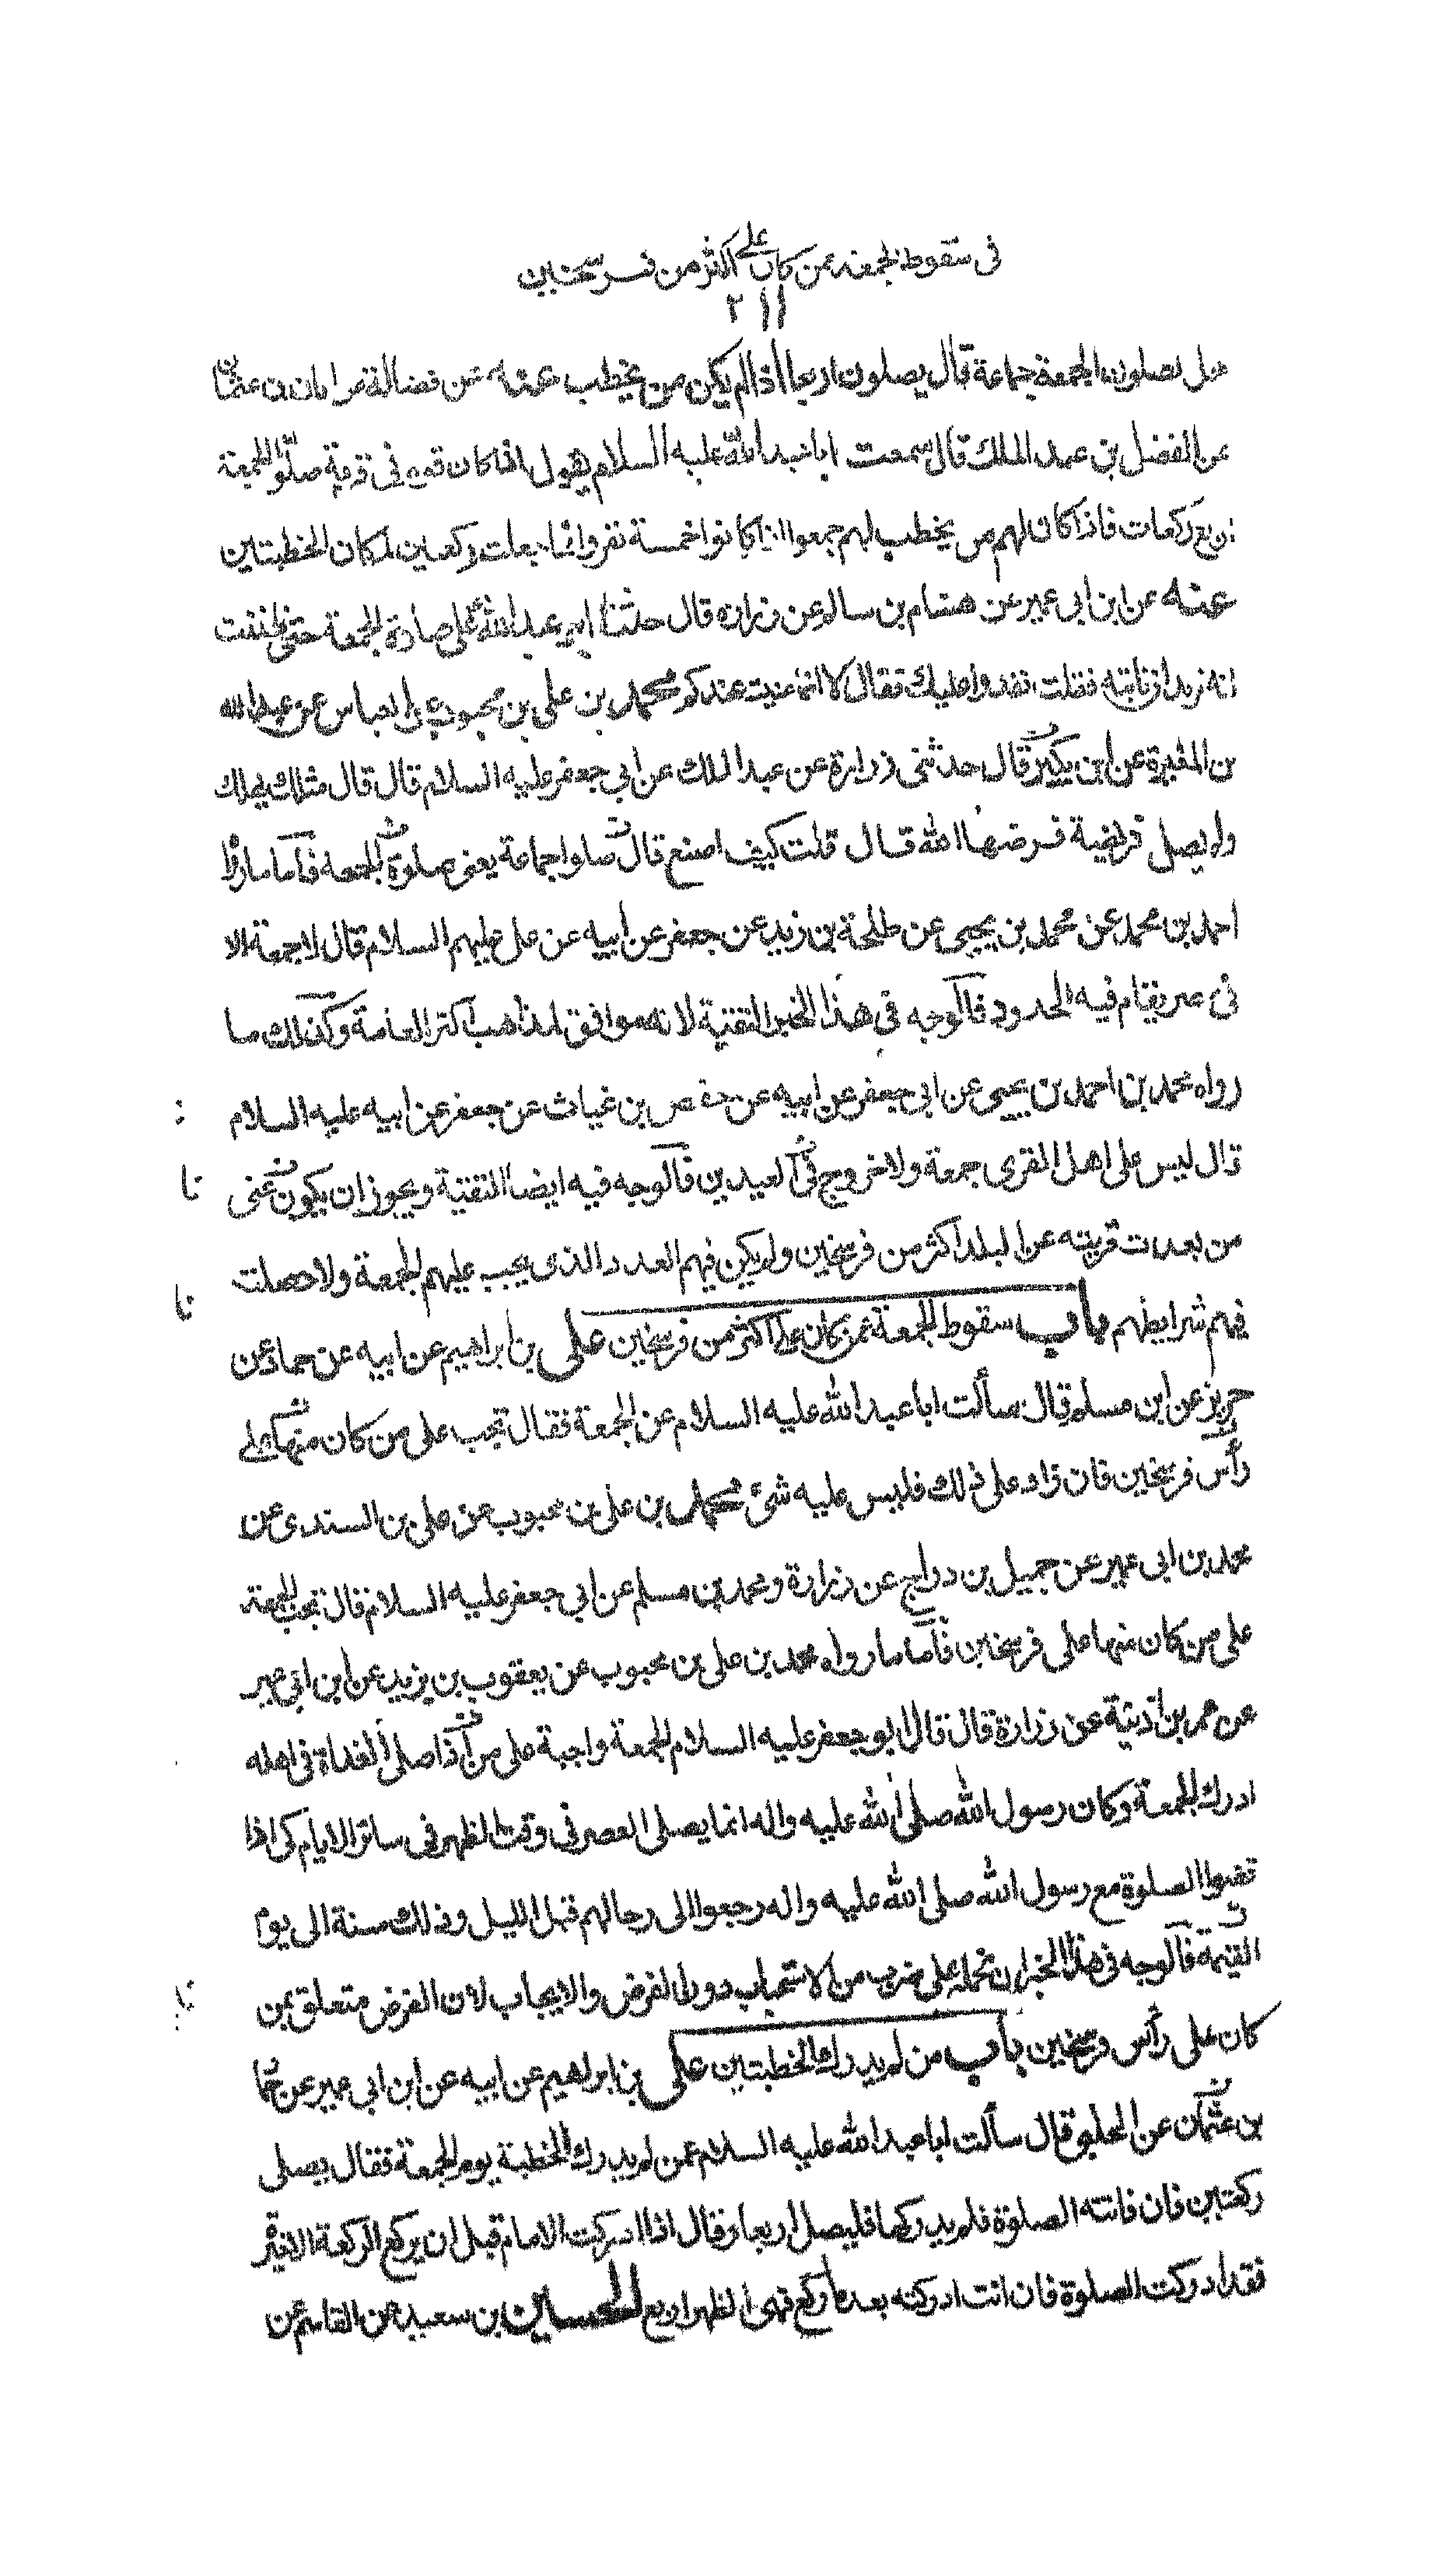 في سقوط الجمعة عمن كان على اكثر من فرسخين
٢١١
هل يصلون الجمعة جماعة قال يصلون اربعا اذا لم يكن من يخطب عنه عن فضالة عن ابان بن عثمان
عن الفضل بن عبد الملك قال سمعت ابا عبد الله عليه السلام يقول اذا كان قوم في قرية صلوا الجمعة
اربع ركعات فاذا كان لهم من يخطب لهم جمعوا اذا كانوا خمسة نفر وانما جعلت ركعتين لمكان الخطبتين
عنه عن ابن ابي عمير عن هشام بن سالم عن زرارة قال حثنا ابو عبد الله على صلوة الجمعة حتى ظننت
انه يريد ان ناتيه فقلت نغدوا عليك فقال لا انما عنيت عندكم محمد بن علي بن محبوب عن العباس عن عبد الله
بن المغيرة عن ابن بكير قال حدثني زرارة عن عبد الملك عن ابي جعفر عليه السلام قال قال مثلك يهلك
ولم يصل فريضة فرضها الله قال قلت كيف اصنع قال صلوا جماعة يعني صلوة الجمعة فاما ما رواه
احمد بن محمد عن محمد بن يحيى عن طلحة بن زيد عن جعفر عن ابيه عن علي عليهم السلام قال لا جمعة الا
في مصر يقام فيه الحدود فالوجه في هذا الخبر التقية لانه موافق لمذاهب اكثر العامة وكذلك ما
رواه محمد بن احمد بن يحيى عن ابي جعفر عن ابيه عن حفص بن غياث عن جعفر عن ابيه عليه السلام
قال ليس على اهل القرى جمعة ولا خروج في العيدين فالوجه فيه ايضا التقية ويجوز ان يكون عنى
من بعدت قريته عن البلد اكثر من فرسخين ولم يكن فيهم العدد الذى يجب عليهم الجمعة ولا حصلت
فيهم شرايطهم باب سقوط الجمعة عمن كان على اكثر من فرسخين علي بن ابراهيم عن ابيه عن حماد عن
حريز عن ابن مسلم قال سألت ابا عبد الله عليه السلام عن الجمعة فقال تجب على من كان منها على
رأس فرسخين فان زاد على ذلك فليس عليه شئ محمد بن علي بن محبوب عن علي بن السندى عن
محمد بن ابي عمير عن جميل بن دراج عن زرارة ومحمد بن مسلم عن ابي جعفر عليه السلام قال تجب الجمعة
على من كان منها على فرسخين فاما ما رواه محمد بن علي بن محبوب عن يعقوب بن يزيد عن ابن ابي عمير
عن عمر بن اذينة عن زرارة قال قال ابو جعفر عليه السلام الجمعة واجبة على من اذا صلى الغداة في اهله
ادرك الجمعة وكان رسول الله صلى الله عليه واله انما يصلى العصر في وقت الظهر في سائر الايام كى اذا
قضوا الصلوة مع رسول الله صلى الله عليه واله رجعوا الى رحالهم قبل الليل وذلك سنة الى يوم
القيمة فالوجه في هذا الخبر ان نحمله على ضرب من الاستحباب دون الفرض والايجاب لان الفرض متعلق بمن
كان على رأس فرسخين باب من لم يدرك الخطبتين علي بن ابراهيم عن ابيه عن ابن ابي عمير عن حماد
بن عثمان عن الحلبي قال سألت ابا عبد الله عليه السلام عمن لم يدرك الخطبة يوم الجمعة فقال يصلي
ركعتين فان فاتته الصلوة فلم يدركها فليصل اربعا وقال اذا ادركت الامام قبل ان يركع الركعة الاخيرة
فقد ادركت الصلوة فان انت ادركته بعد ما ركع فهى الظهر اربع الحسين بن سعيد عن القاسم عن